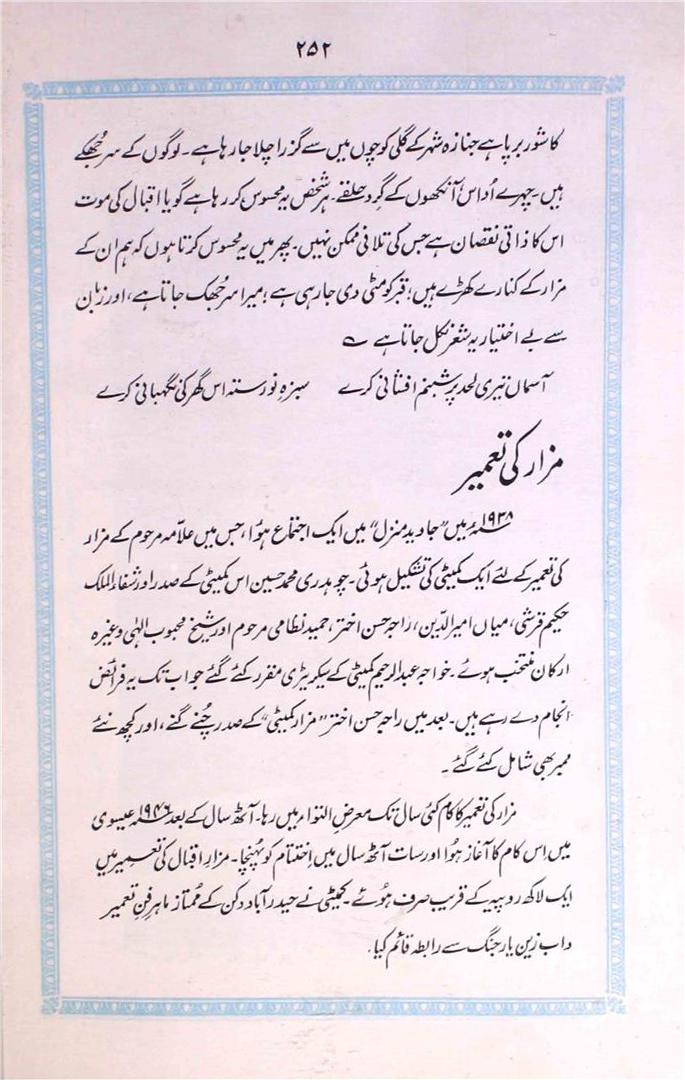 ۲۵۲
کا شور برپا ہے جنازہ شہر کے گلی کوچوں میں سے گزرا چلا جا رہا ہے۔ لوگوں کے سر جُھکے
ہیں۔ چہرے اُداس آنکھوں کے گِرد حلقے۔ ہر شخص یہ محسوس کر رہا ہے گویا اقبال کی موت
اس کا ذاتی نقصان ہے جس کی تلافی ممکن نہیں۔ پھر میں یہ محسوس کرتا ہوں کہ ہم ان کے
مزار کے کنارے کھڑے ہیں؛ قبر کو مٹی دی جا رہی ہے؛ میرا سر جُھک جاتا ہے، اور زبان
سے بے اختیار یہ شعر نکل جاتا ہے ؎
آسماں تیری لحد پر شبنم افشانی کرے سبزہِ نورستہ اس گھر کی نگہبانی کرے
مزار کی تعمیر
۱۹۳۸ء میں "جاوید منزل" میں ایک اجتماع ہؤا، جس میں علاّمہ مرحوم کے مزار
کی تعمیر کے لئے ایک کمیٹی کی تشکیل ہوئی۔ چوہدری محمد حسین اس کمیٹی کے صدر اور شفاء الملک
حکیم قرشی، میاں امیر الدّین، راجہ حسن اختر، حمید نظامی مرحوم اور شیخ محبوب الٰہی وغیرہ
ارکان منتخب ہوئے۔ خواجہ عبدالرحیم کمیٹی کے سیکریٹری مقرر کئے گئے جو اب تک یہ فرائض
انجام دے رہے ہیں۔ بعد میں راجہ حسن اختر "مزار کمیٹی" کے صدر چُنے گئے، اور کچھ نئے
ممبر بھی شامل کئے گئے۔
مزار کی تعمیر کا کام کئی سال تک معرضِ التواء میں رہا۔ آٹھ سال کے بعد ۱۹۴۶ء عیسوی
میں اِس کام کا آغاز ہؤا اور سات آٹھ سال میں اِختتام کو پُہنچا۔ مزارِ اقبال کی تعمیر میں
ایک لاکھ روپیہ کے قریب صرف ہوئے۔ کمیٹی نے حیدرآباد دکن کے مُمتاز ماہرِ فنِ تعمیر
واب زین یار جنگ سے رابطہ قائم کیا۔